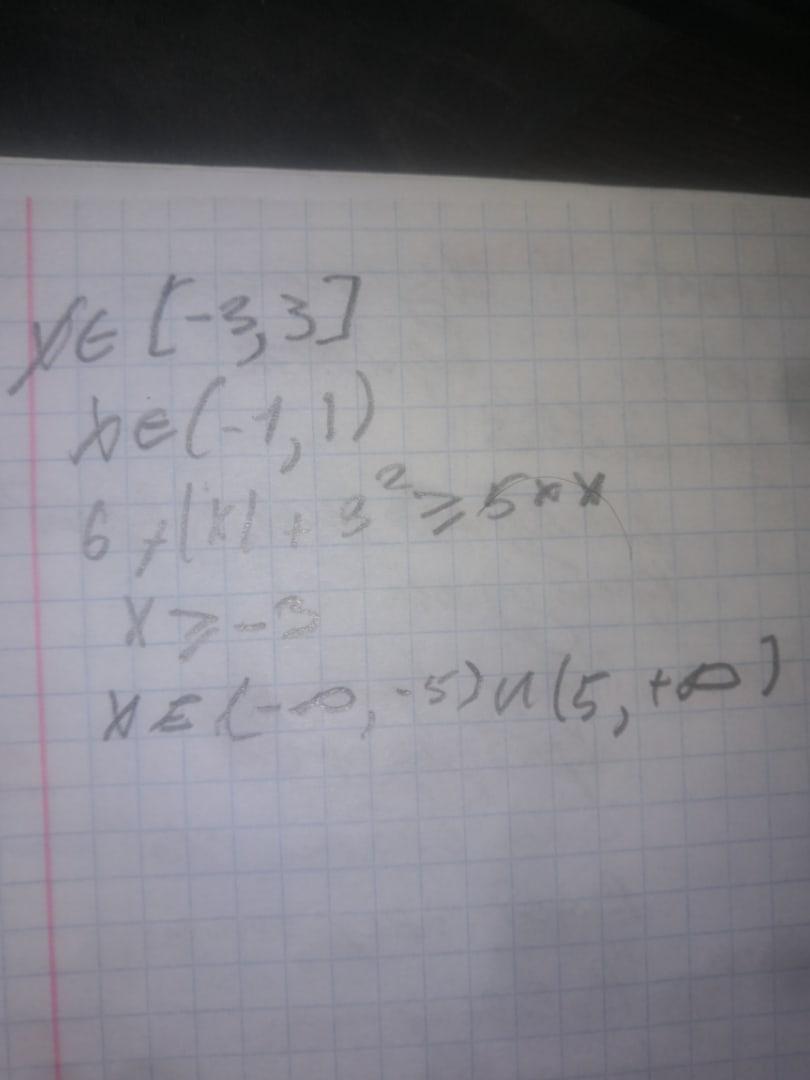 x∈[-3,3]
x∈(-1,1)
6+|x|+3²≥5xx
x≥-3
x∈(-∞,-5)∪(5,+∞)